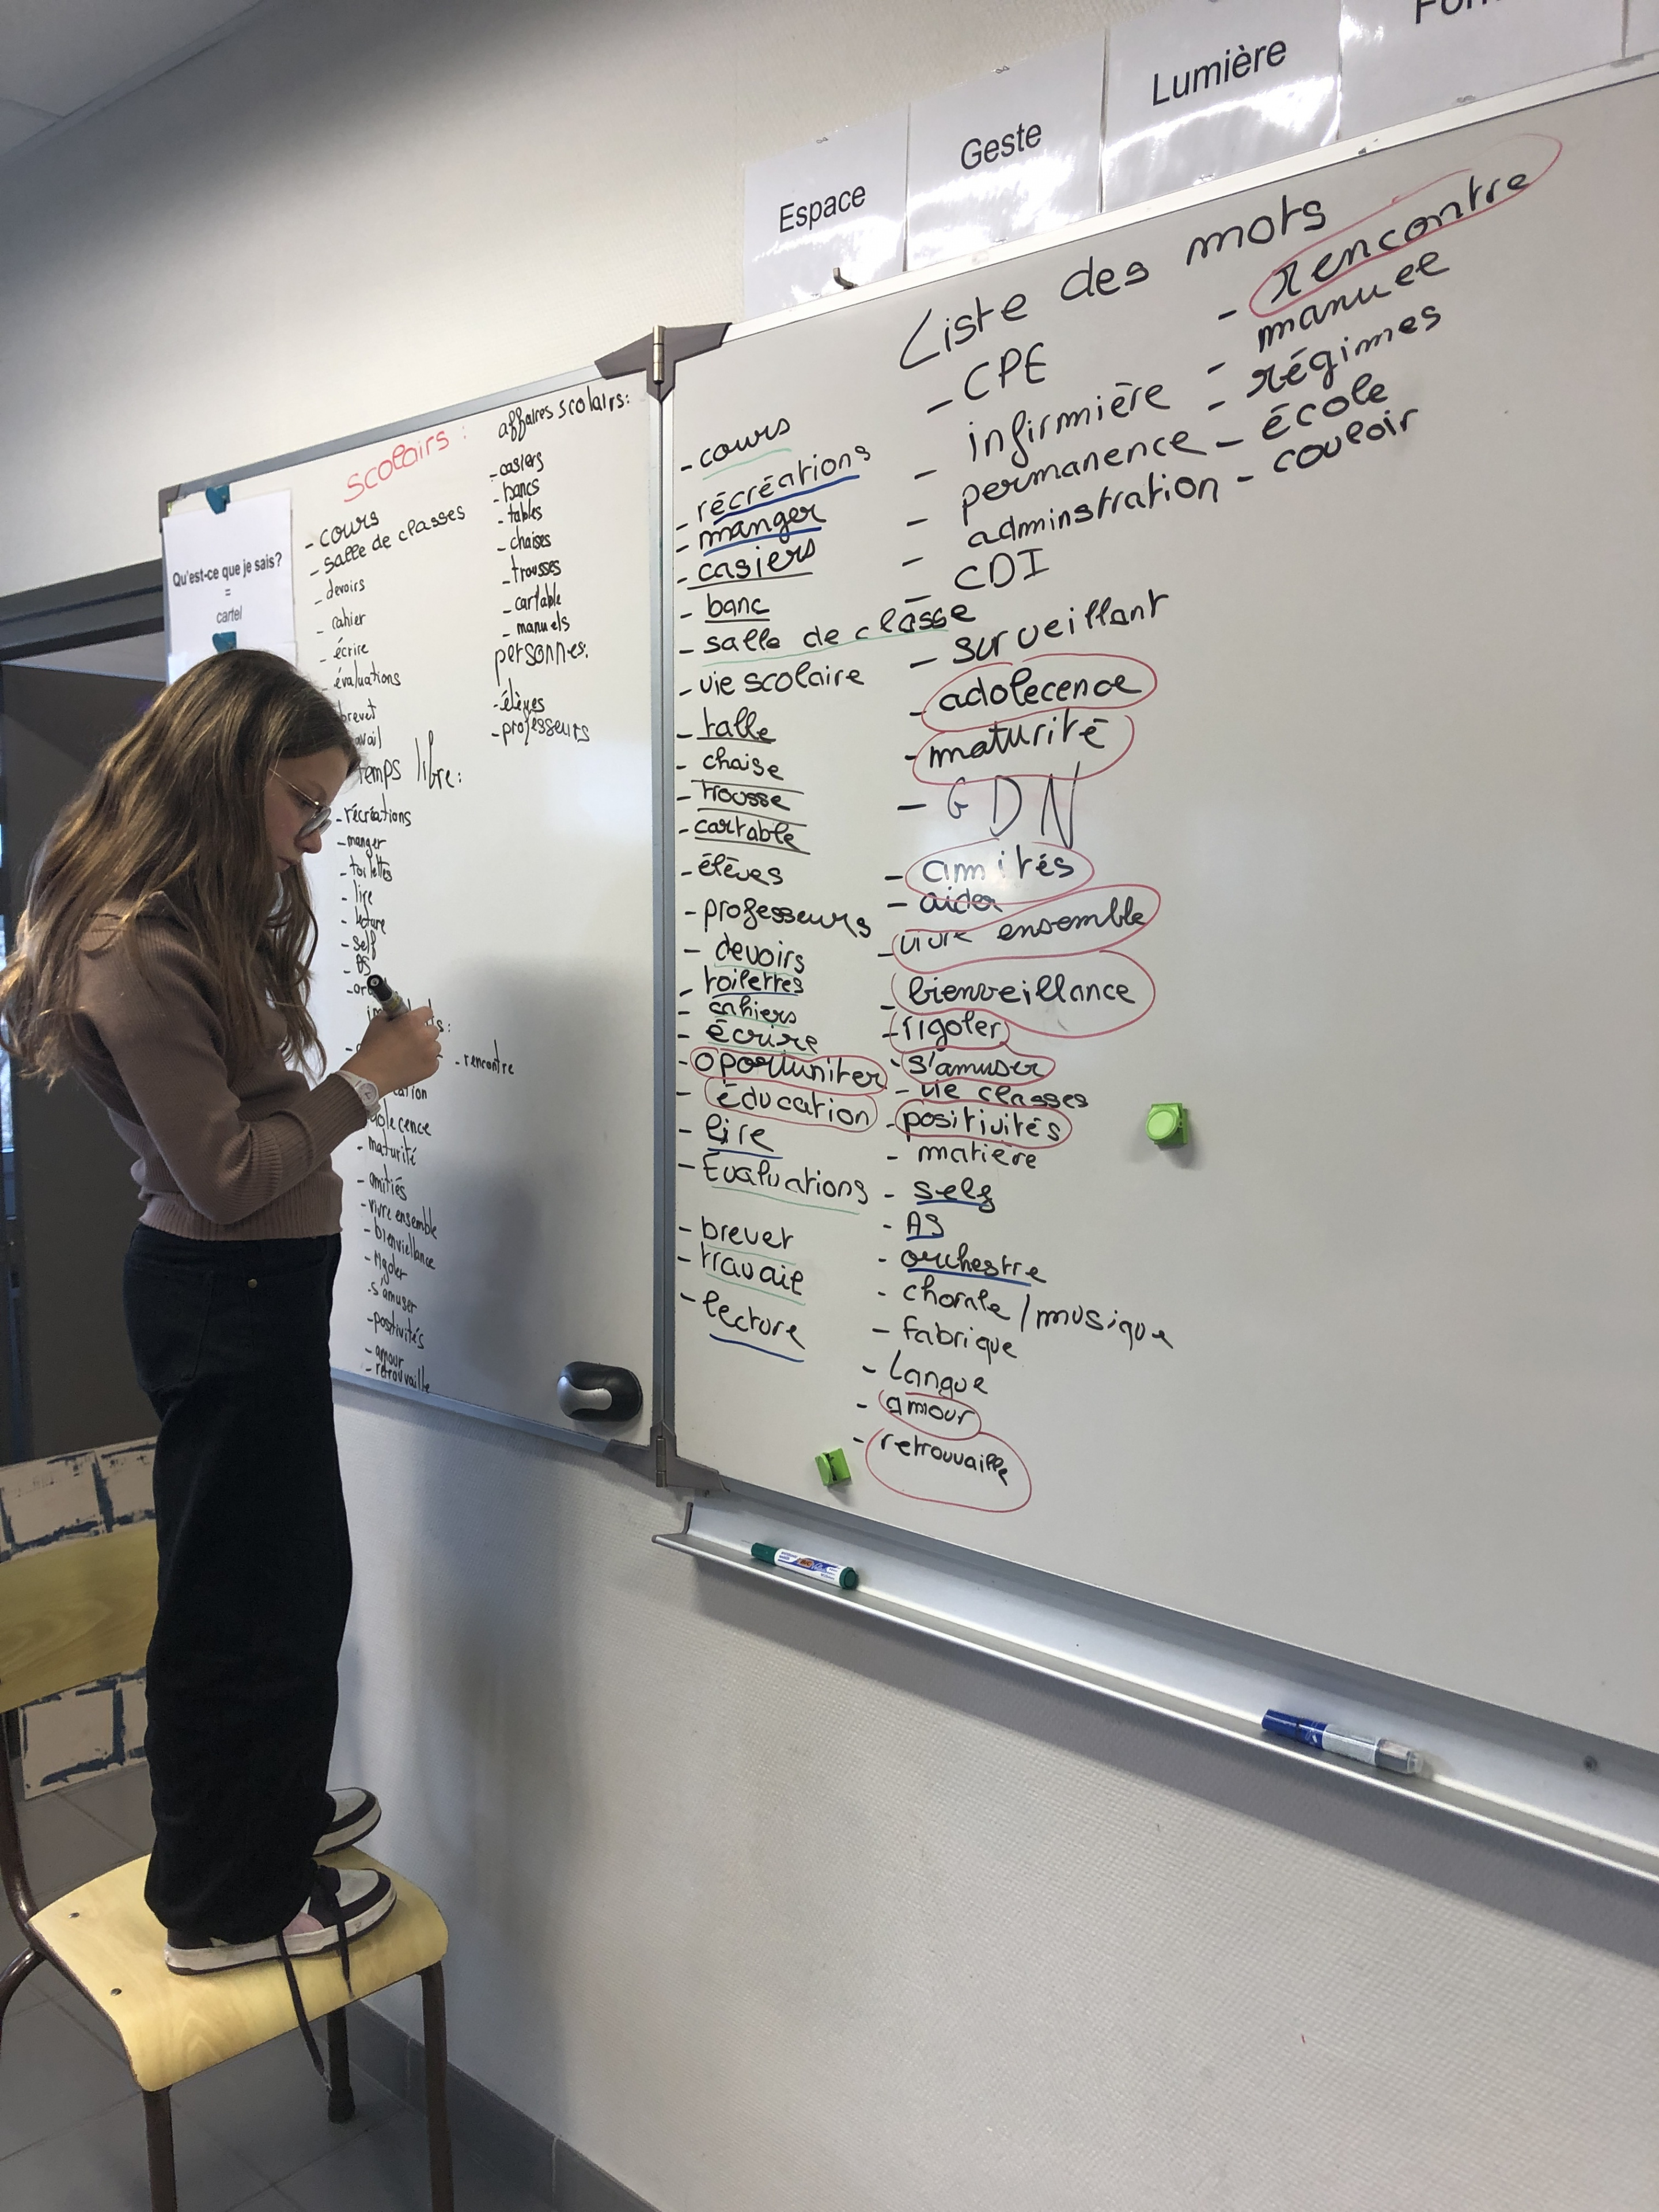 Espace
Geste
Lumière
Qu'est-ce que je sais?
=
cartel
scolairs :
- cours
- salle de classes
- devoirs
- cahier
- écrire
- évaluations
brevet
temps libre :
- récréations
- manger
- toilettes
- lire
- lecture
- self
- AS
- rencontre
- maturité
- amitiés
- vivre ensemble
- bienviellance
- rigoler
- s'amuser
- positivités
- amour
- retrouvaille
affaires scolairs :
- casiers
- bancs
- tables
- chaises
- trousses
- cartable
- manuels
personnes :
- élèves
- professeurs
Liste des mots
- cours
- récréations
- manger
- casiers
- banc
- salle de classe
- vie scolaire
- table
- chaise
- trousse
- cartable
- élèves
- professeurs
- devoirs
- toilettes
- cahiers
- écrire
- oportuniter
- éducation
- lire
- Évaluations
- brevet
- travail
- lecture
- CPE
- infirmière
- permanence
- adminstration
- CDI
- surveillant
- adolecence
- maturité
- GDN
- amités
- aider
- vivre ensemble
- bienveillance
- rigoler
- s'amuser
- vie classes
- positivités
- matière
- self
- AS
- orchestre
- chorale / musique
- fabrique
- langue
- amour
- retrouvaille
- rencontre
- manuel
- régimes
- école
- couloir